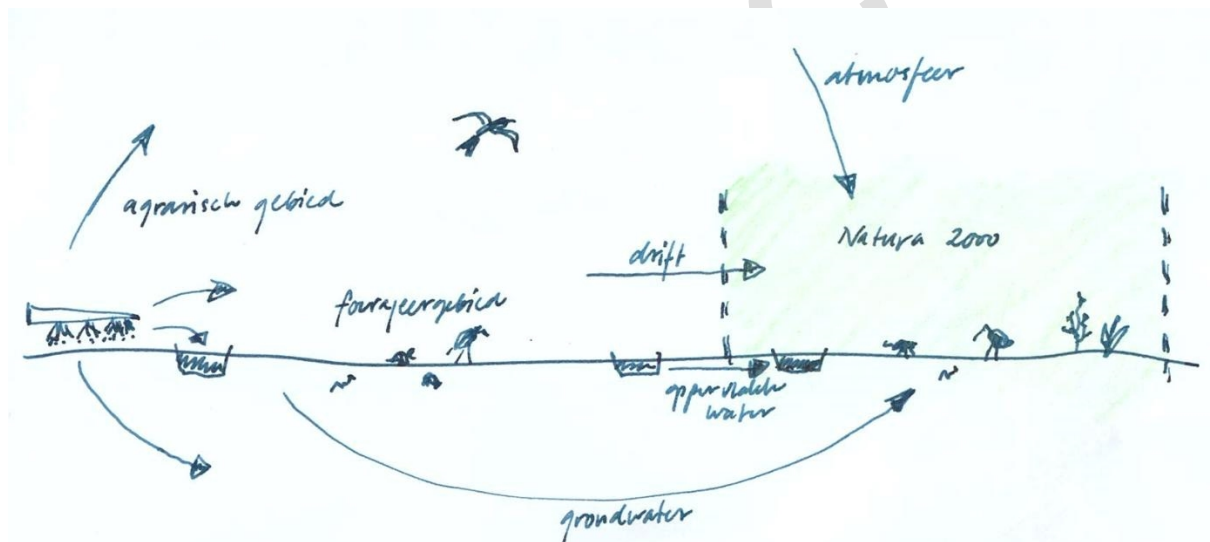 atmosfeer
agrarisch gebied
Natura 2000
drift
fourageergebied
oppervlakte
water
grondwater